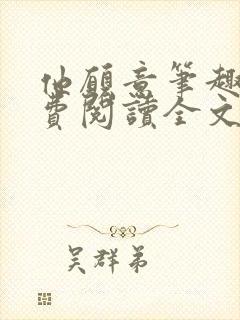 他願意筆趣
費閱讀全文
吳群弟